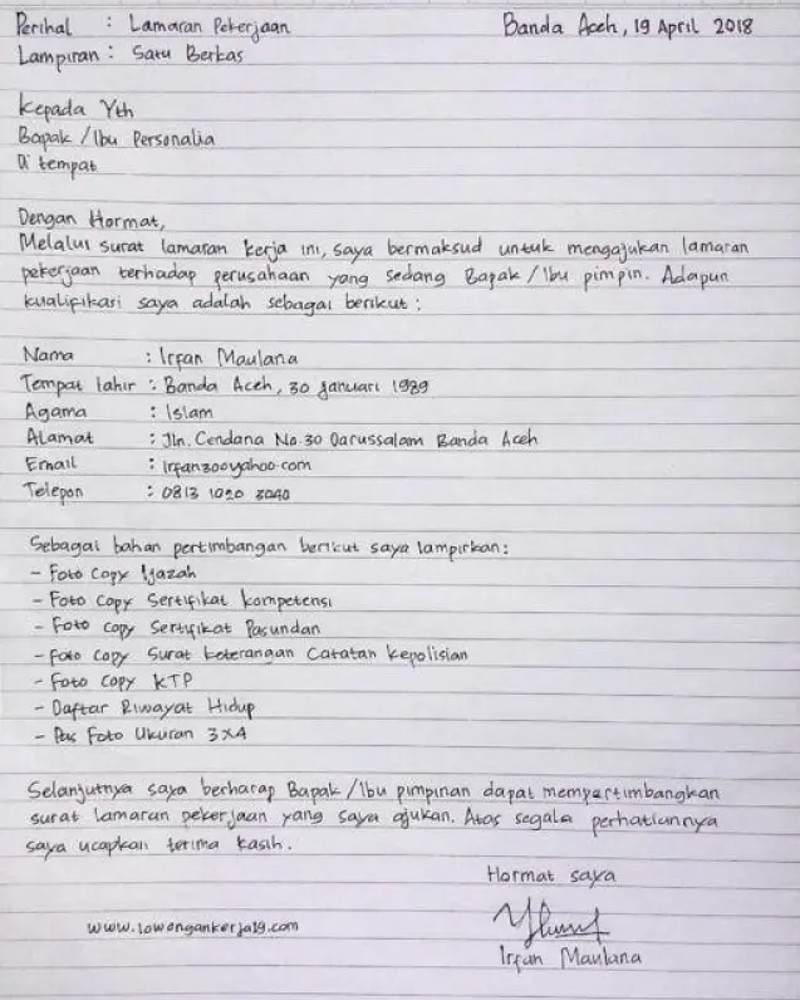 Perihal : Lamaran Pekerjaan Banda Aceh, 19 April 2018
Lampiran : Satu Berkas
Kepada Yth
Bapak / Ibu Personalia
Di tempat
Dengan Hormat,
Melalui surat lamaran kerja ini, saya bermaksud untuk mengajukan lamaran
pekerjaan terhadap perusahaan yang sedang Bapak / Ibu pimpin. Adapun
kualifikasi saya adalah sebagai berikut :
Nama : Irfan Maulana
Tempat lahir : Banda Aceh, 30 Januari 1989
Agama : Islam
Alamat : Jln. Cendana No. 30 Darussalam Banda Aceh
Email : irfan300yahoo.com
Telepon : 0813 1020 3040
Sebagai bahan pertimbangan berikut saya lampirkan :
- Foto Copy Ijazah
- Foto Copy Sertifikat Kompetensi
- Foto Copy Sertifikat Pasundan
- Foto Copy Surat Keterangan Catatan Kepolisian
- Foto Copy KTP
- Daftar Riwayat Hidup
- Pas Foto Ukuran 3x4
Selanjutnya saya berharap Bapak / Ibu pimpinan dapat mempertimbangkan
surat lamaran pekerjaan yang saya ajukan. Atas segala perhatiannya
saya ucapkan terima kasih.
Hormat saya
www.lowongankerja19.com
Irfan Maulana